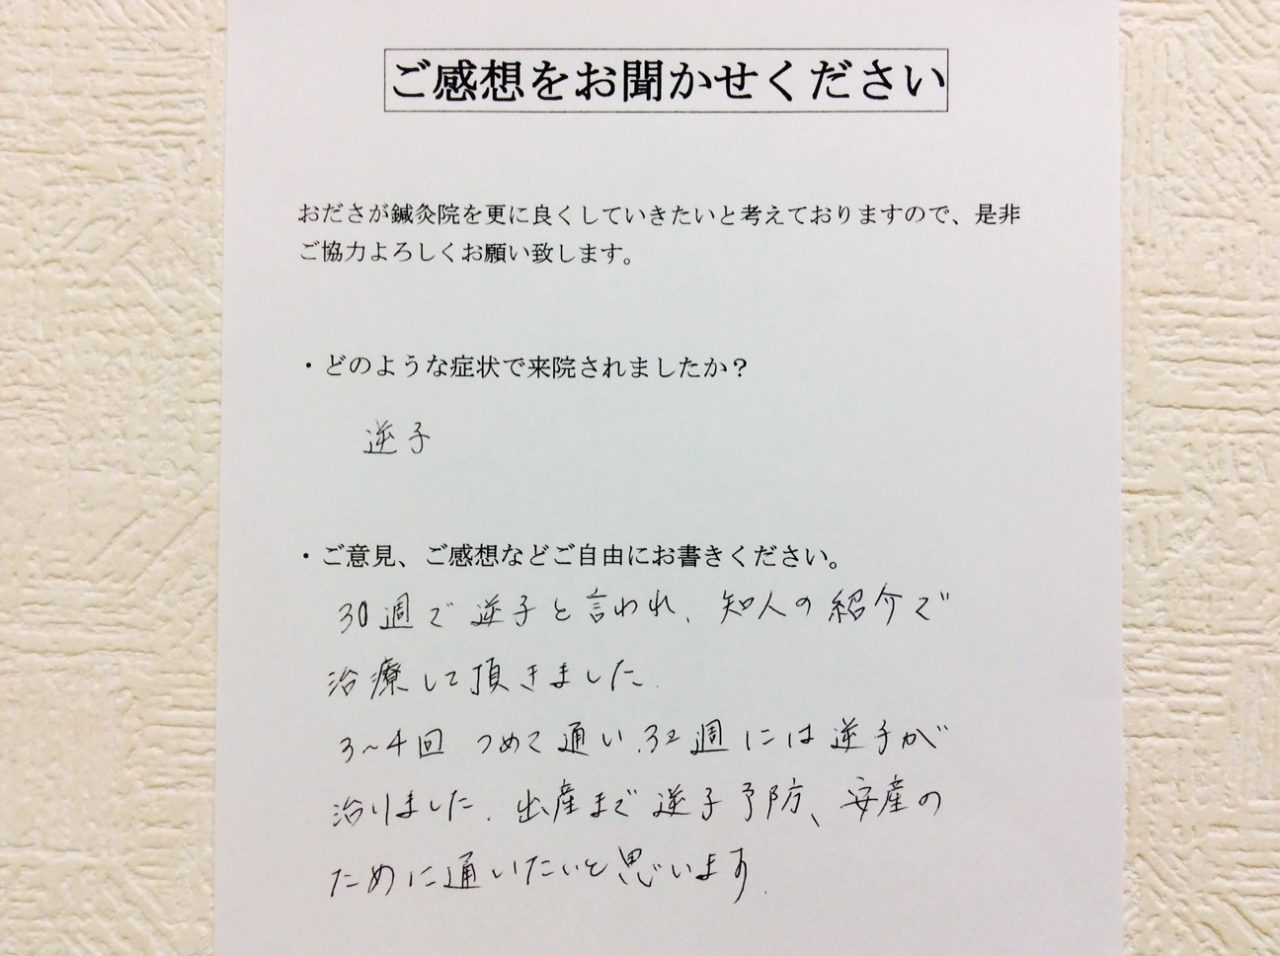 ご感想をお聞かせください
おださが鍼灸院を更に良くしていきたいと考えておりますので、是非
ご協力よろしくお願い致します。
・どのような症状で来院されましたか？
逆子
・ご意見、ご感想などご自由にお書きください。
30週で逆子と言われ、知人の紹介で
治療して頂きました。
3~4回つめて通い、32週には逆子が
治りました。出産まで逆子予防、安産の
ために通いたいと思います。